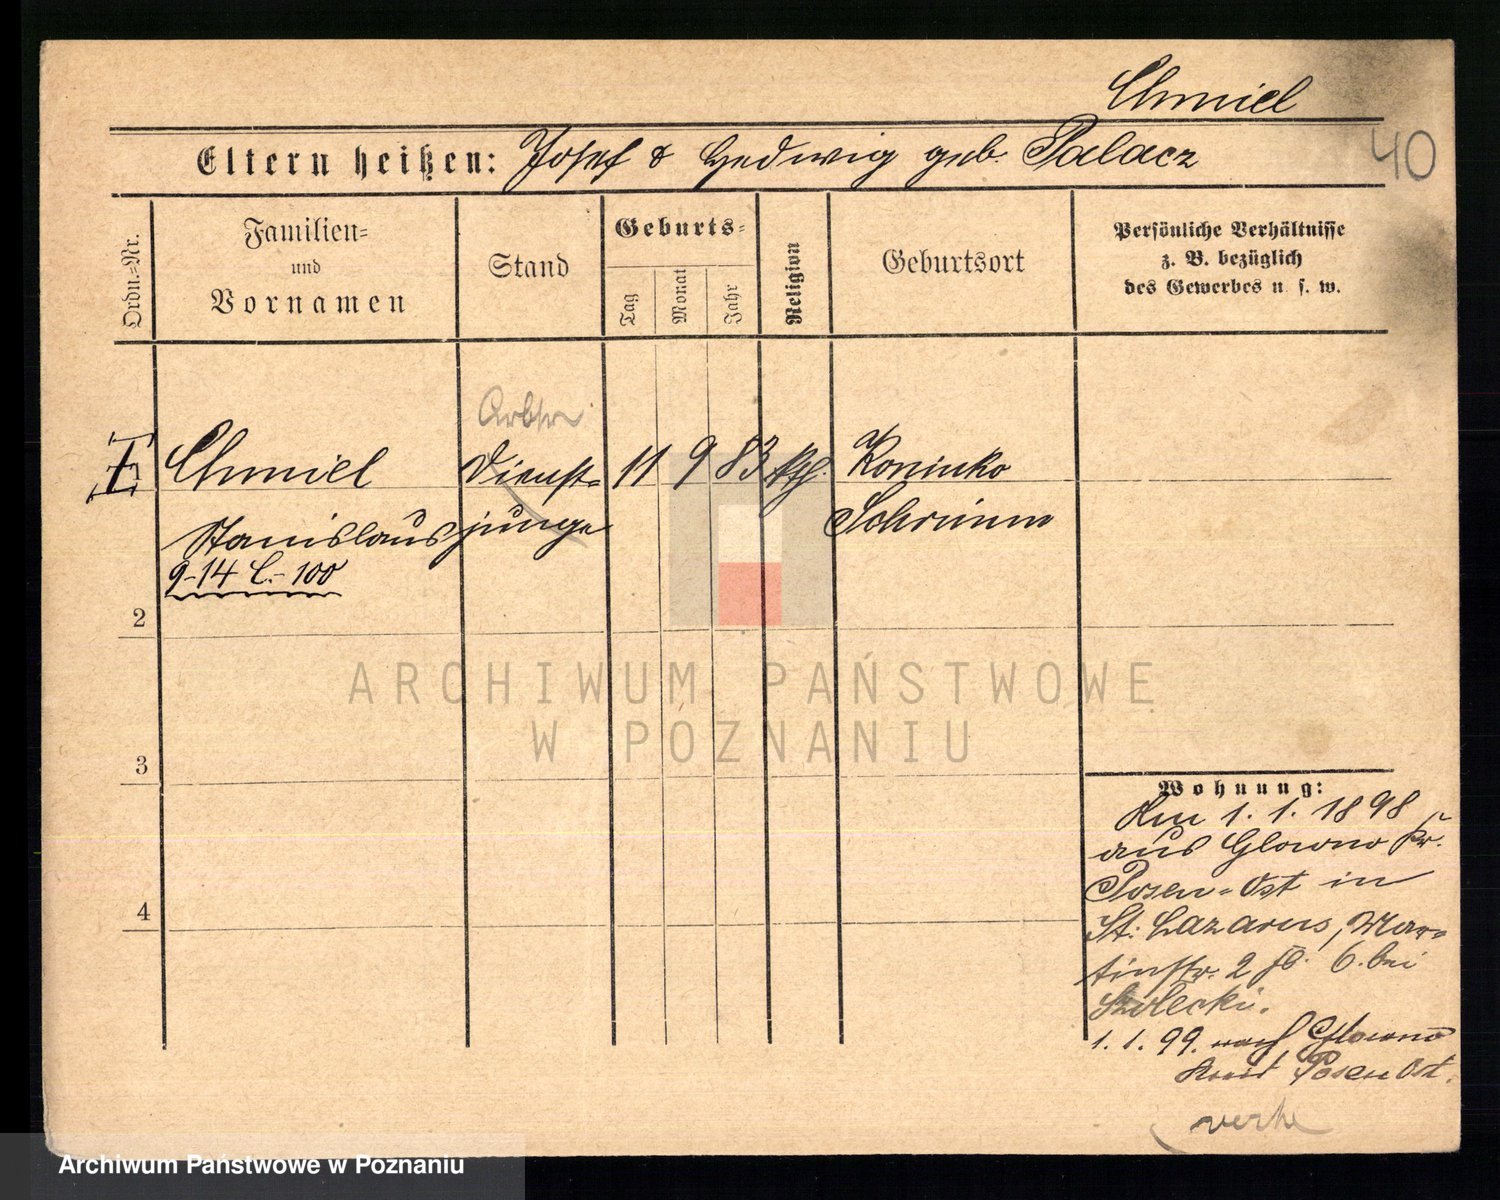 Chmiel
40
Eltern heißen: Josef & Hedwig geb. Palacz
Ordn.-Nr.
Familien-
und
Vornamen
Stand
Geburts-
Tag
Monat
Jahr
Religion
Geburtsort
Persönliche Verhältnisse
z. B. bezüglich
des Gewerbes u. s. w.
Chmiel
Dienst-
11 9 83 kth.
Koninko
Stanislaus
junge
Schrimm
9-14 C.- 100
2
3
4
Wohnung:
Am 1. 1. 1898
aus Glowno Kr.
Posen-Ost in
St. Lazarus, Mar-
tinstr. 2 6. bei
1. 1. 99. nach Glowno
Posen Ost.
ARCHIWUM PAŃSTWOWE
W POZNANIU
Archiwum Państwowe w Poznaniu